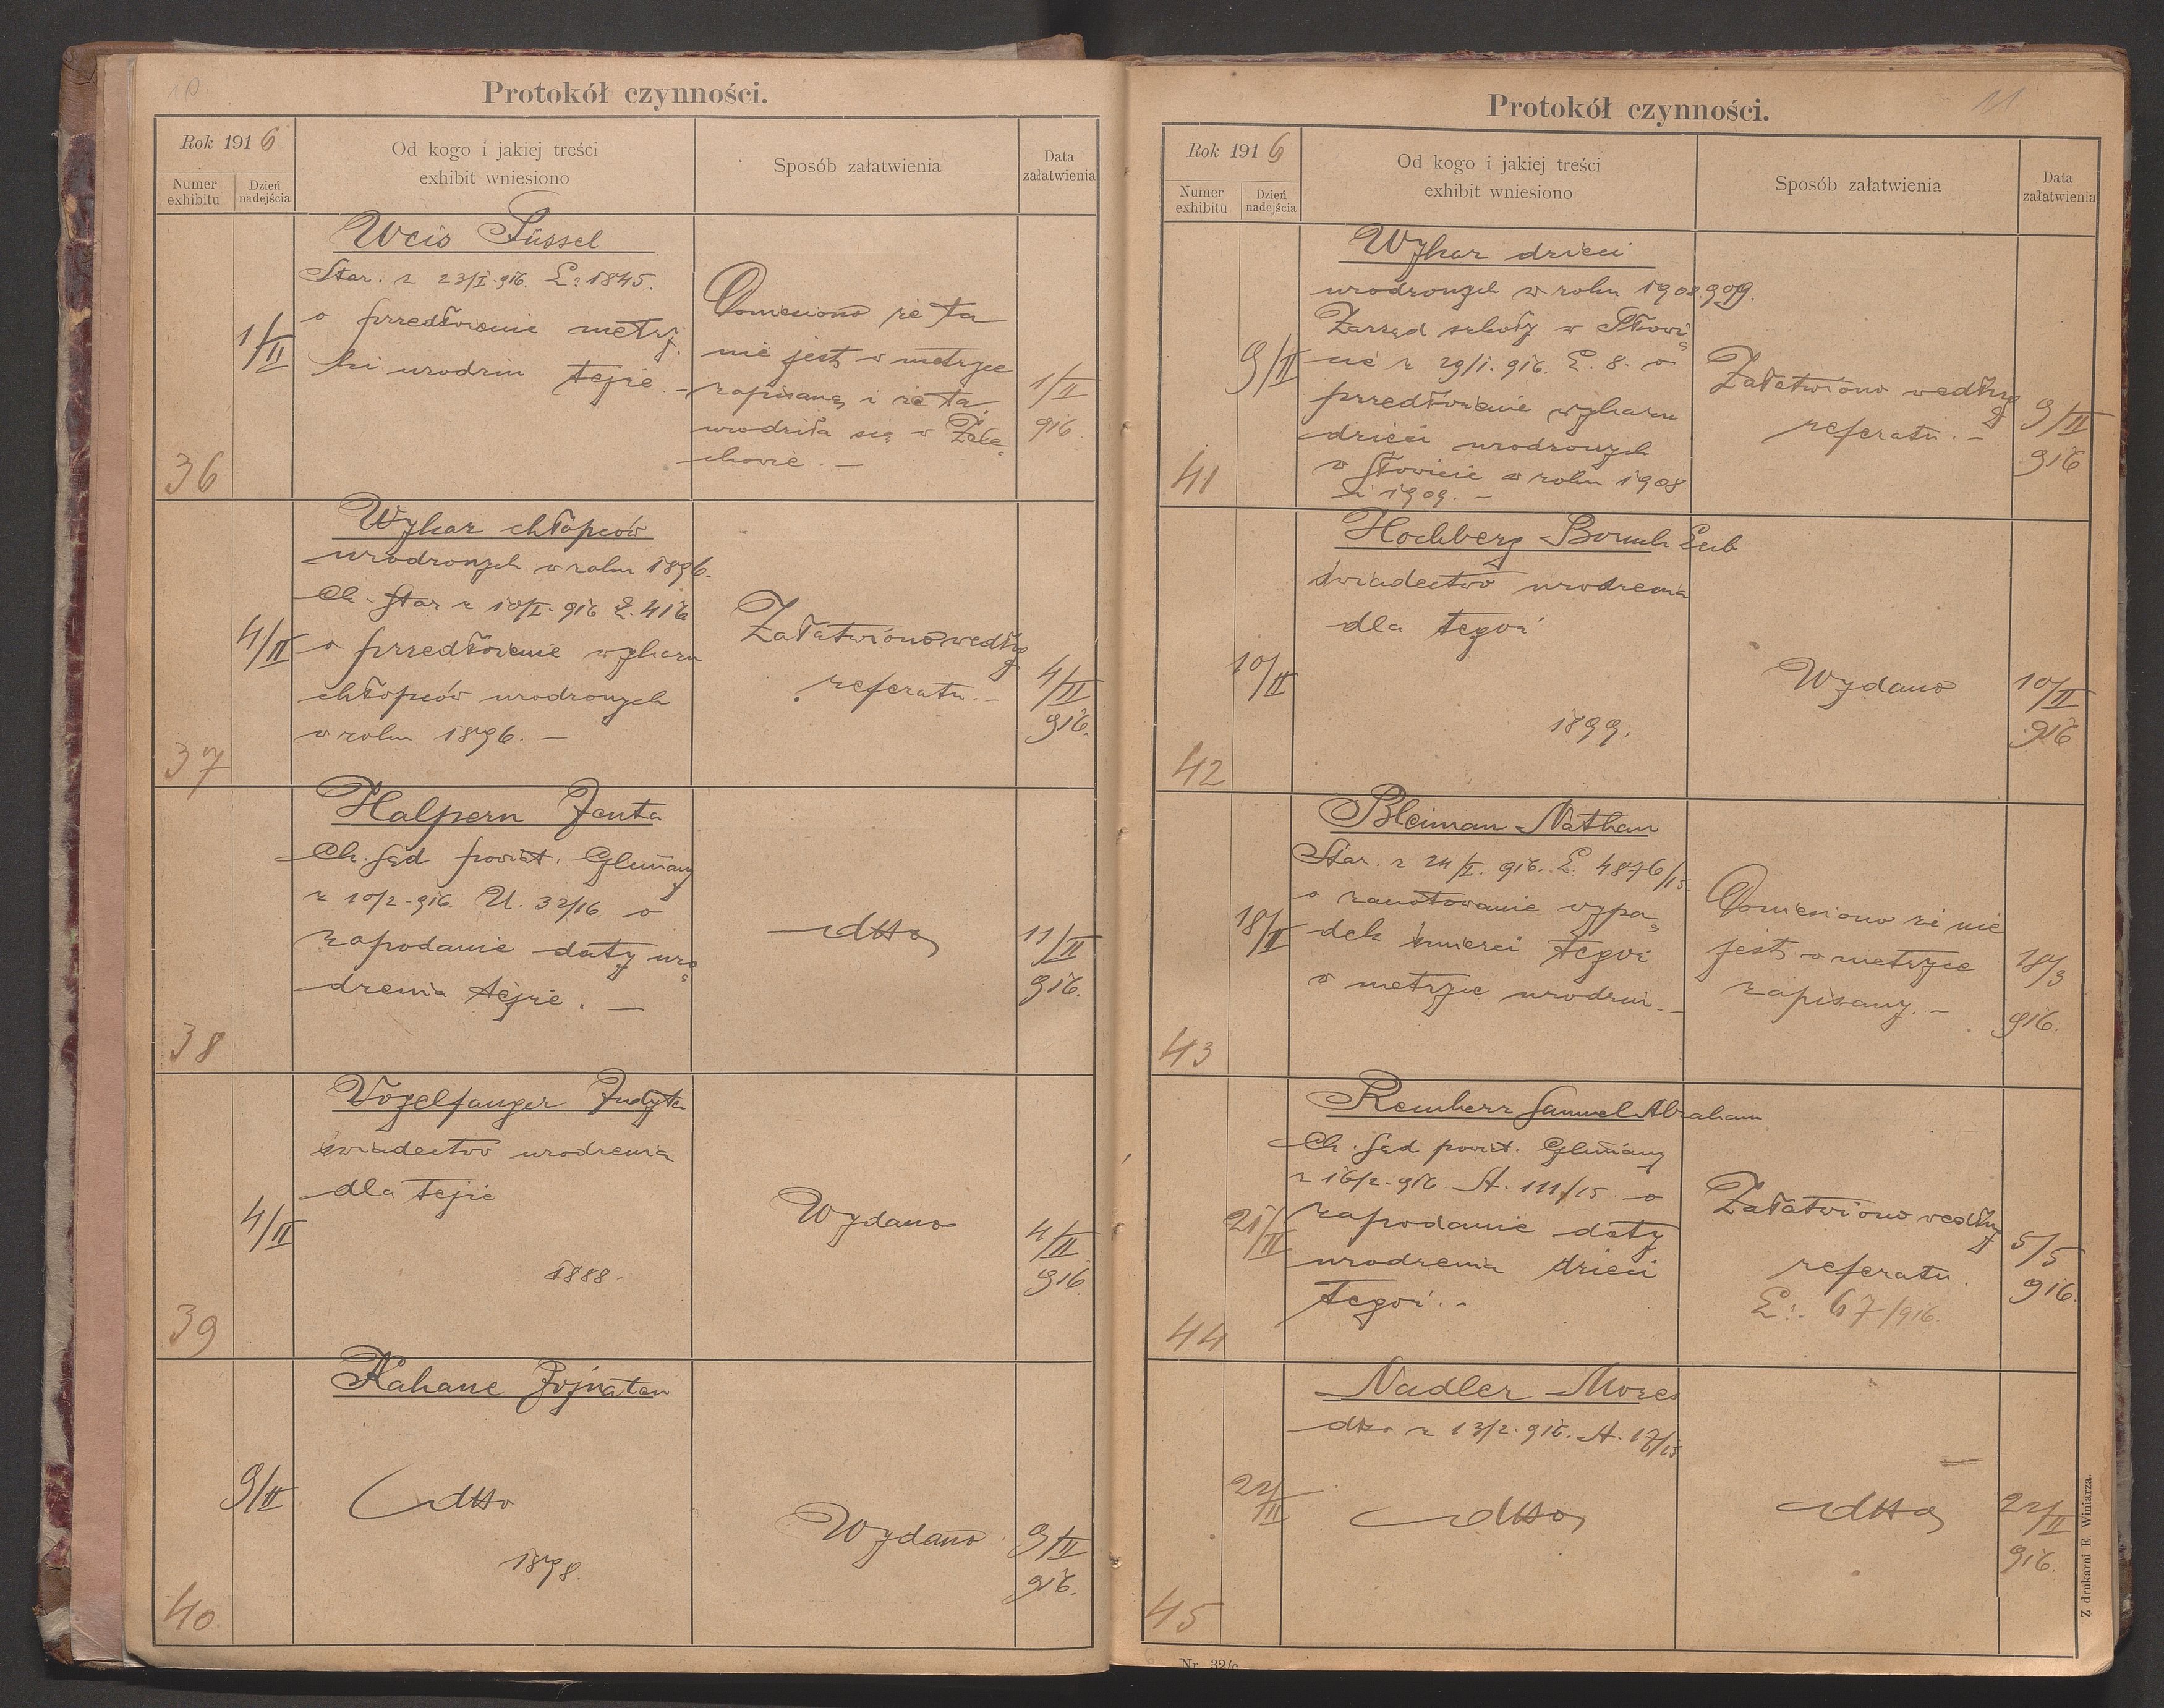 10.
Protokół czynności.
Rok 1916
Numer exhibitu
Dzień nadejścia
Od kogo i jakiej treści
exhibit wniesiono
Sposób załatwienia
Data
załatwienia
36
1/II
Weis Süssel
Star. z 23/I. 916. L: 1845.
o przedłożenie metry,
ki urodzin tejże. -
Doniesiono że ta
nie jest w metryce
zapisaną i że ta
urodziła się w Żele,
chowie. -
1/II
916
37
4/II
Wykaz chłopców
urodzonych w roku 1896.
Ck. Star z 10/I. 916 L. 416
o przedłożenie wykazu
chłopców urodzonych
w roku 1896. -
Załatwiono według
referatu. -
4/II
916.
38
Halpern Jenta
Ck. Sąd powiat. Gliniany
z 10/2. 916. U. 32/16. o
zapodanie daty uro,
dzenia tejże. -
dtto
11/II
916.
39
4/II
Vogelfanger Judyta
świadectwo urodzenia
dla tejże
1888.
Wydano
4/II
916
40
9/II
Kahane Jojnatan
dtto
1898.
Wydano
9/II
916.
11
Protokół czynności.
Rok 1916
Numer exhibitu
Dzień nadejścia
Od kogo i jakiej treści
exhibit wniesiono
Sposób załatwienia
Data
załatwienia
41
9/II
Wykaz dzieci
urodzonych w roku 1908. 909.
Zarząd szkoły w Słowi,
cie z 29/1. 916. L. 8. o
przedłożenie wykazu
dzieci urodzonych
w Słowicie w roku 1908
i 1909. -
Załatwiono według
referatu. -
9/II
916
42
10/II
Hochberg Boruch Leib
świadectwo urodzenia
dla tegoż
1899.
Wydano
10/II
916
43
18/II
Bleiman Nathan
Star. z 24/I. 916. L. 4876/15
o zanotowanie wypa,
dek śmierci tegoż
w metryce urodzin. -
Doniesiono że nie
jest w metryce
zapisany. -
18/3
916.
44
21/II
Remherz Samuel Abraham
Ck. Sąd powiat. Gliniany
z 16/2. 916. A. 111/15. o
zapodanie daty
urodzenia dzieci
tegoż. -
Załatwiono według
referatu.
L:. 67/916.
5/5
916.
45
22/II
Nadler Mozes
dtto z 13/2. 916. A. 17/15
dtto
dtto
22/II
916.
Z drukarni E. Winiarza.
Nr. 32/c